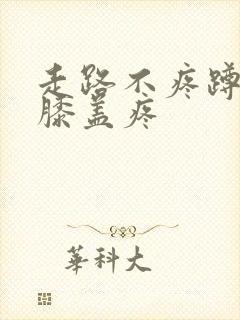 走路不疼蹲
膝盖疼
華科大